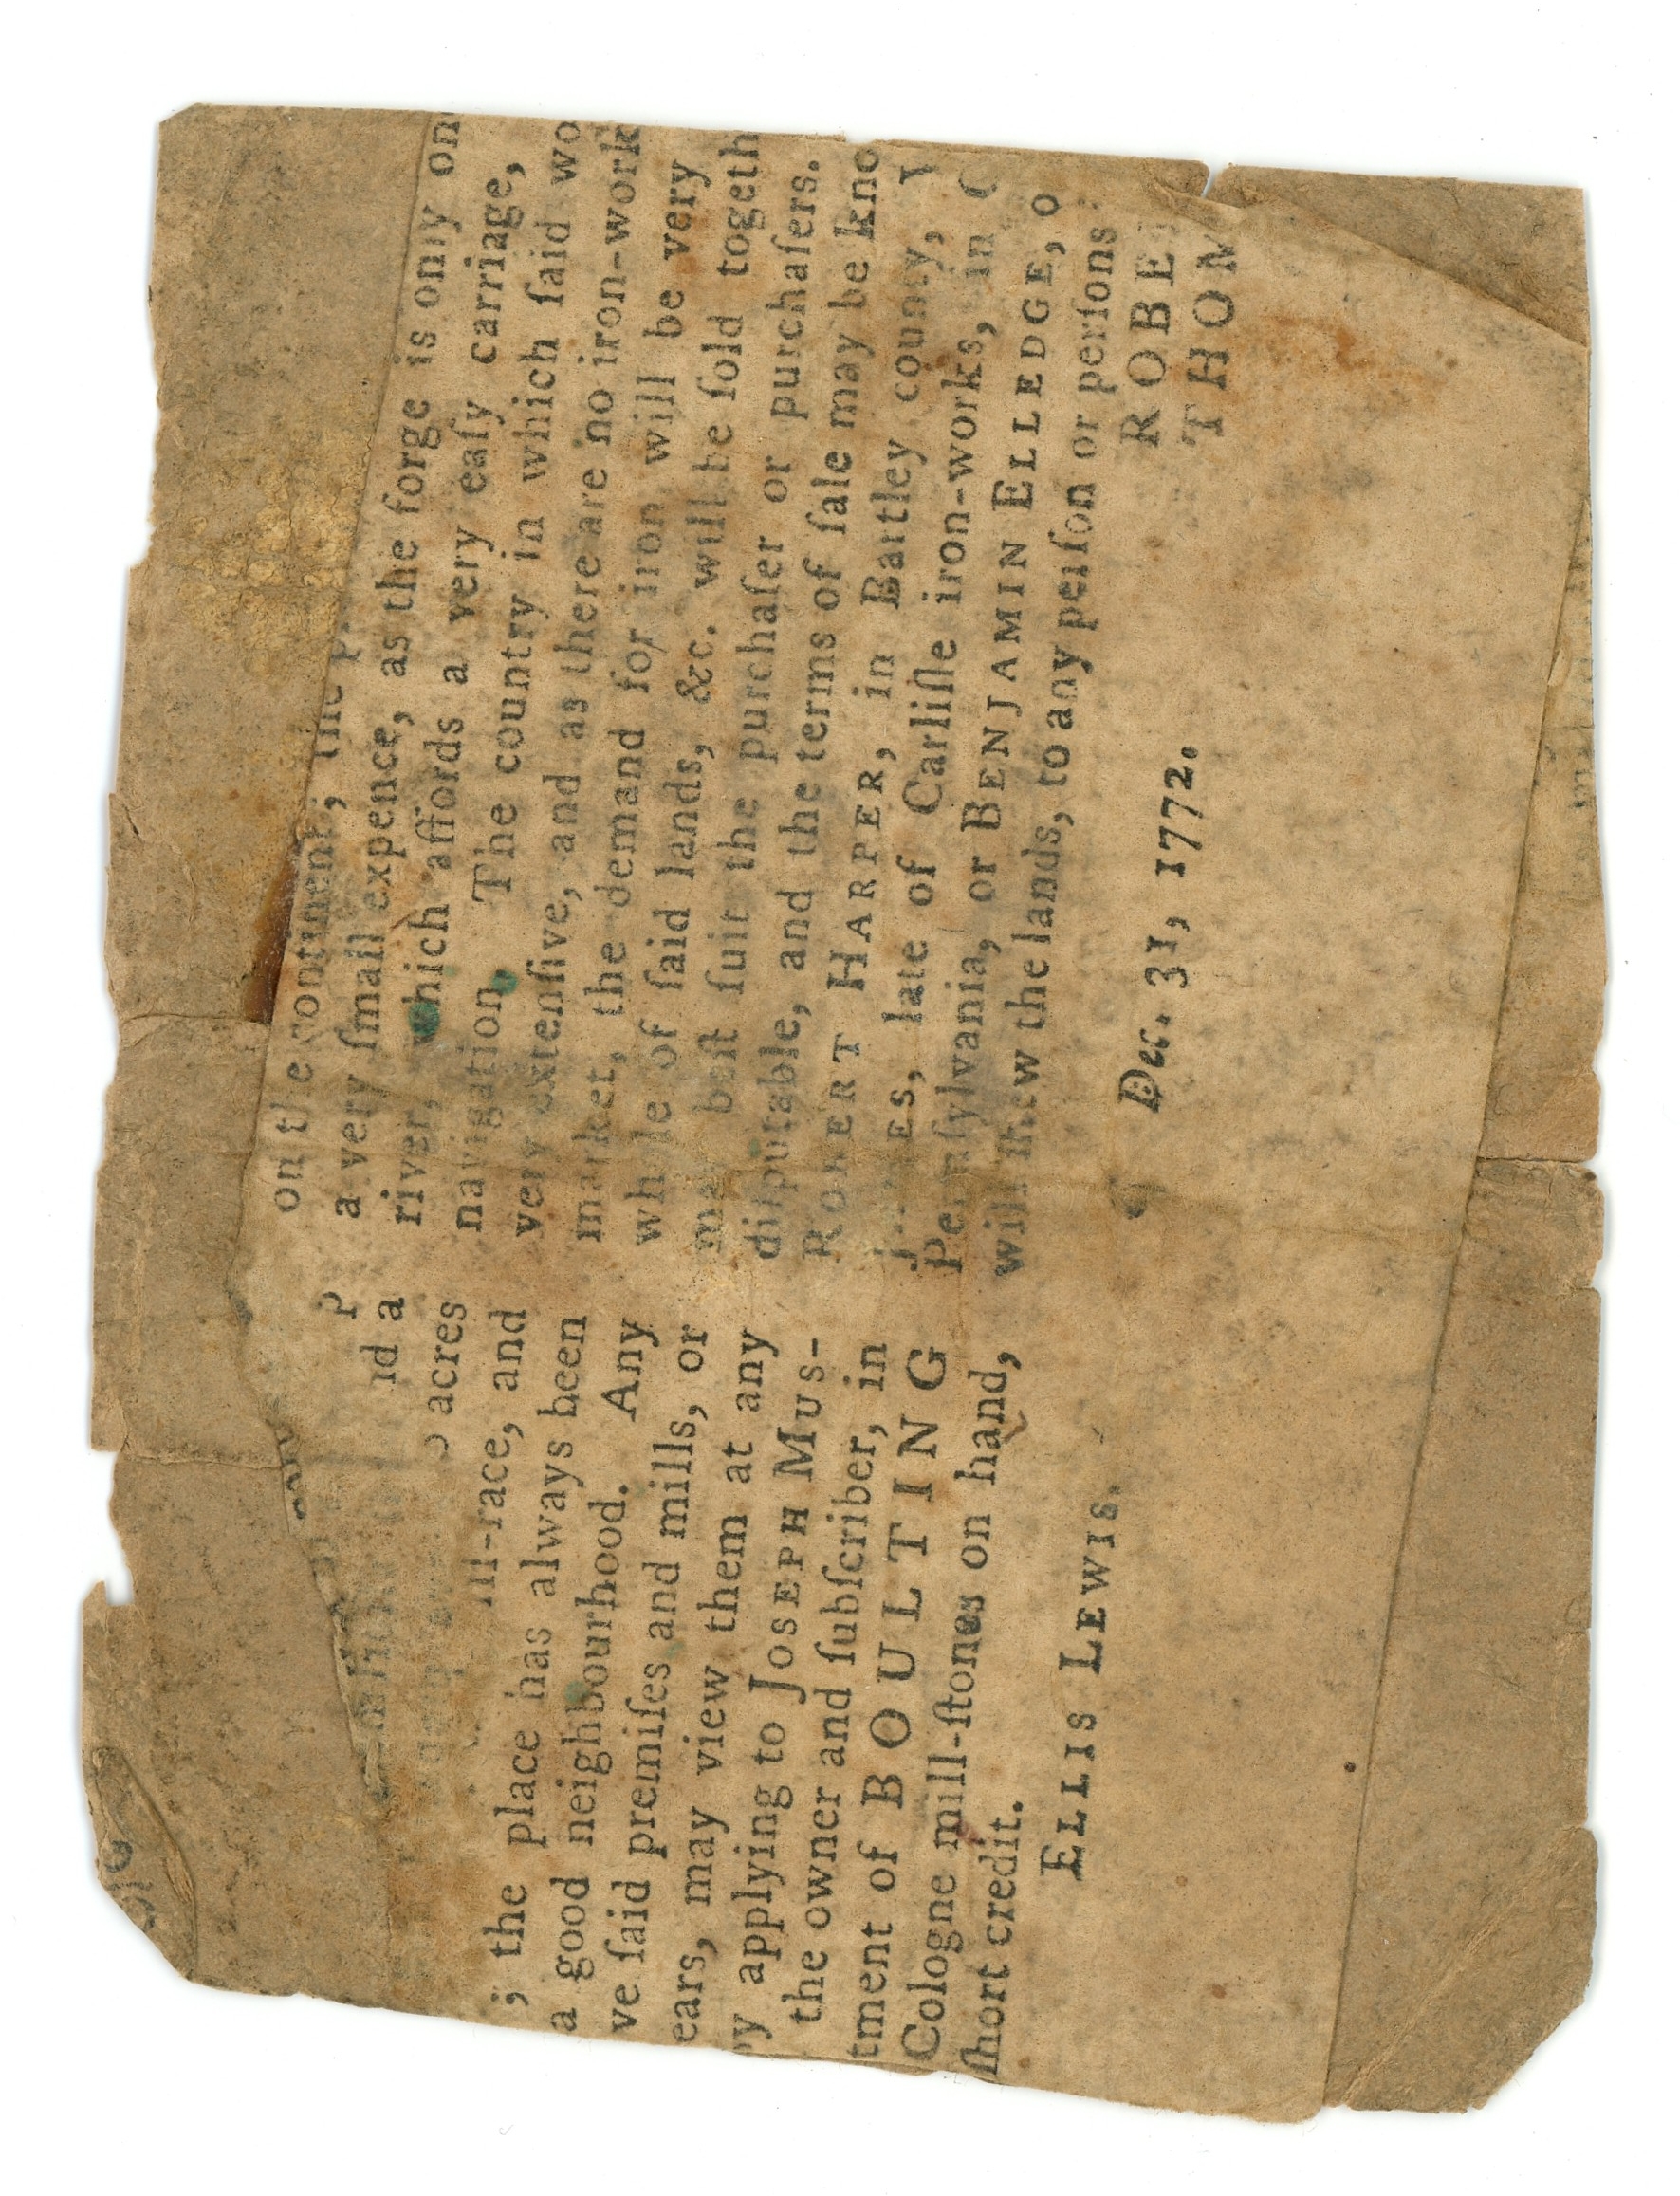 acres
-race, and
; the place has always been
a good neighbourhood. Any
ve ſaid premiſes and mills, or
ears, may view them at any
y applying to JOSEPH MUS-
the owner and ſubſcriber, in
tment of BOULTING
Cologne mill-ſtones on hand,
ſhort credit.
ELLIS LEWIS.
on the continent; the
a very ſmall expence, as the forge is only on
river, which affords a very eaſy carriage,
navigation. The country in which ſaid wo
very extenſive, and as there are no iron-work
market, the demand for iron will be very
whole of ſaid lands, &c. will be ſold togeth
beſt ſuit the purchaſer or purchaſers.
diſputable, and the terms of ſale may be kno
ROBERT HARPER, in Bartley county,
ES, late of Carliſle iron-works, in
Pennſylvania, or BENJAMIN ELLEDGE, o
will ſhew the lands, to any perſon or perſons
ROBE
THOM
Dec. 31, 1772.